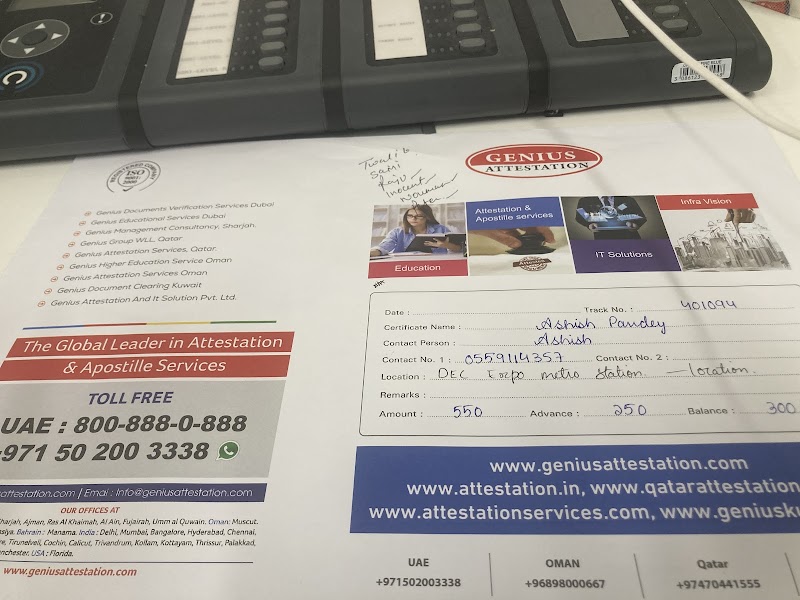 REGISTERED COMPANY
ISO
9001:
2000
Genius Documents Verification Services Dubai
Genius Educational Services Dubai
Genius Management Consultancy, Sharjah.
Genius Group WLL, Qatar
Genius Attestation Services, Qatar.
Genius Higher Education Service Oman
Genius Attestation Services Oman
Genius Document Clearing Kuwait
Genius Attestation And It Solution Pvt. Ltd.
The Global Leader in Attestation
& Apostille Services
TOLL FREE
UAE : 800-888-0-888
+971 50 200 3338
attestation.com | Emai : Info@geniusattestation.com
OUR OFFICES AT
harjah, Ajman, Ras Al Khaimah, Al Ain, Fujairah, Umm al Quwain. Oman: Muscut.
Bahrain : Manama. India : Delhi, Mumbai, Bangalore, Hyderabad, Chennai,
Tirunelveli, Cochin, Calicut, Trivandrum, Kollam, Kottayam, Thrissur, Palakkad,
nchester. USA : Florida.
www.geniusattestation.com
Sabi
Raju
Inocent
GENIUS
ATTESTATION
Education
Attestation &
Apostille services
IT Solutions
Infra Vision
Date :
Track No. : 401094
Certificate Name : Ashish Pandey
Contact Person : Ashish
Contact No. 1 : 0559114357 Contact No. 2 :
Location : DEC Expo metro station - location.
Remarks :
Amount : 550 Advance : 250 Balance : 300
www.geniusattestation.com
www.attestation.in, www.qatarattestation
www.attestationservices.com, www.geniusku
UAE
+971502003338
OMAN
+96898000667
Qatar
+97470441555